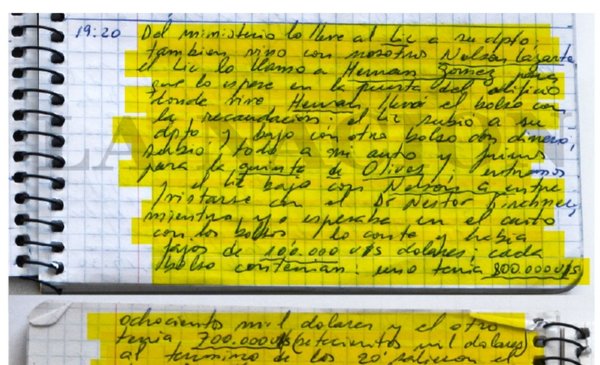 19:20 Del ministerio lo lleve al Lic a su dpto
tambien vino con nosotros Nelson Lazarte
el Lic lo llamo a Hernan Gomez para
que lo espere en la puerta del edificio
donde vive Hernan llevó el bolso con
la recaudacion: el Lic subio a su
dpto y bajo con otro bolso con dinero,
subió todo a mi auto y fuimos
para la quinta de Olivos, entramos
y el Lic bajo con Nelson a entre
vistarse con el Dr Nestor Kirchner,
mientras yo esperaba en el auto
con los bolsos, lo conte y habia
fajos de 100.000 U$S dolares; cada
bolso contenian: uno tenia 800.000U$S
ochocientos mil dolares y el otro
tenia 700.000U$S (setecientos mil dolares)
al termino de los 20' salieron el
LA NACION